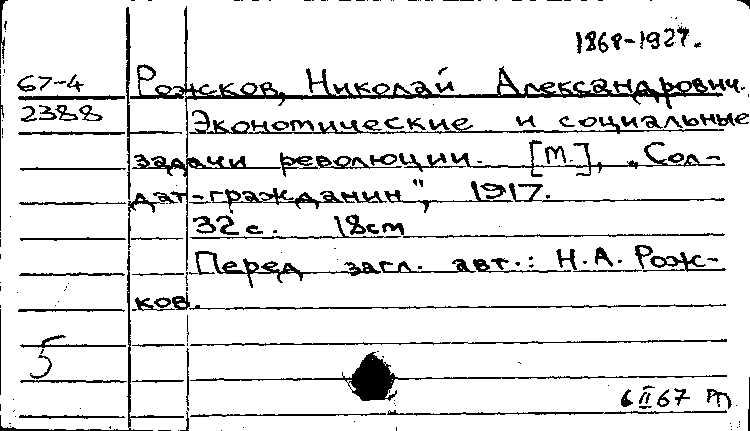 1868-1927.
67-4 Рожков, Николай Александрович.
2388 Экономические и социальные
задачи революции. [М.], „Сол-
дат-гражданин", 1917.
32 с. 18см
Перед загл. авт.: Н.А. Рож-
ков.
5
6 II 67 m